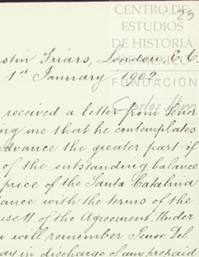 CENTRO DE
ESTUDIOS
DE HISTORIA
FUNDACIÓN
Carlos Slim
23
Austin Friars, London, E.C.
1st January 1902
received a letter from Señor
ing me that he contemplates
advance the greater part if
of the outstanding balance
price of the Santa Catalina
ance with the terms of the
use 11 of the Agreement. Under
u will remember Señor Del
in discharge of any prepaid